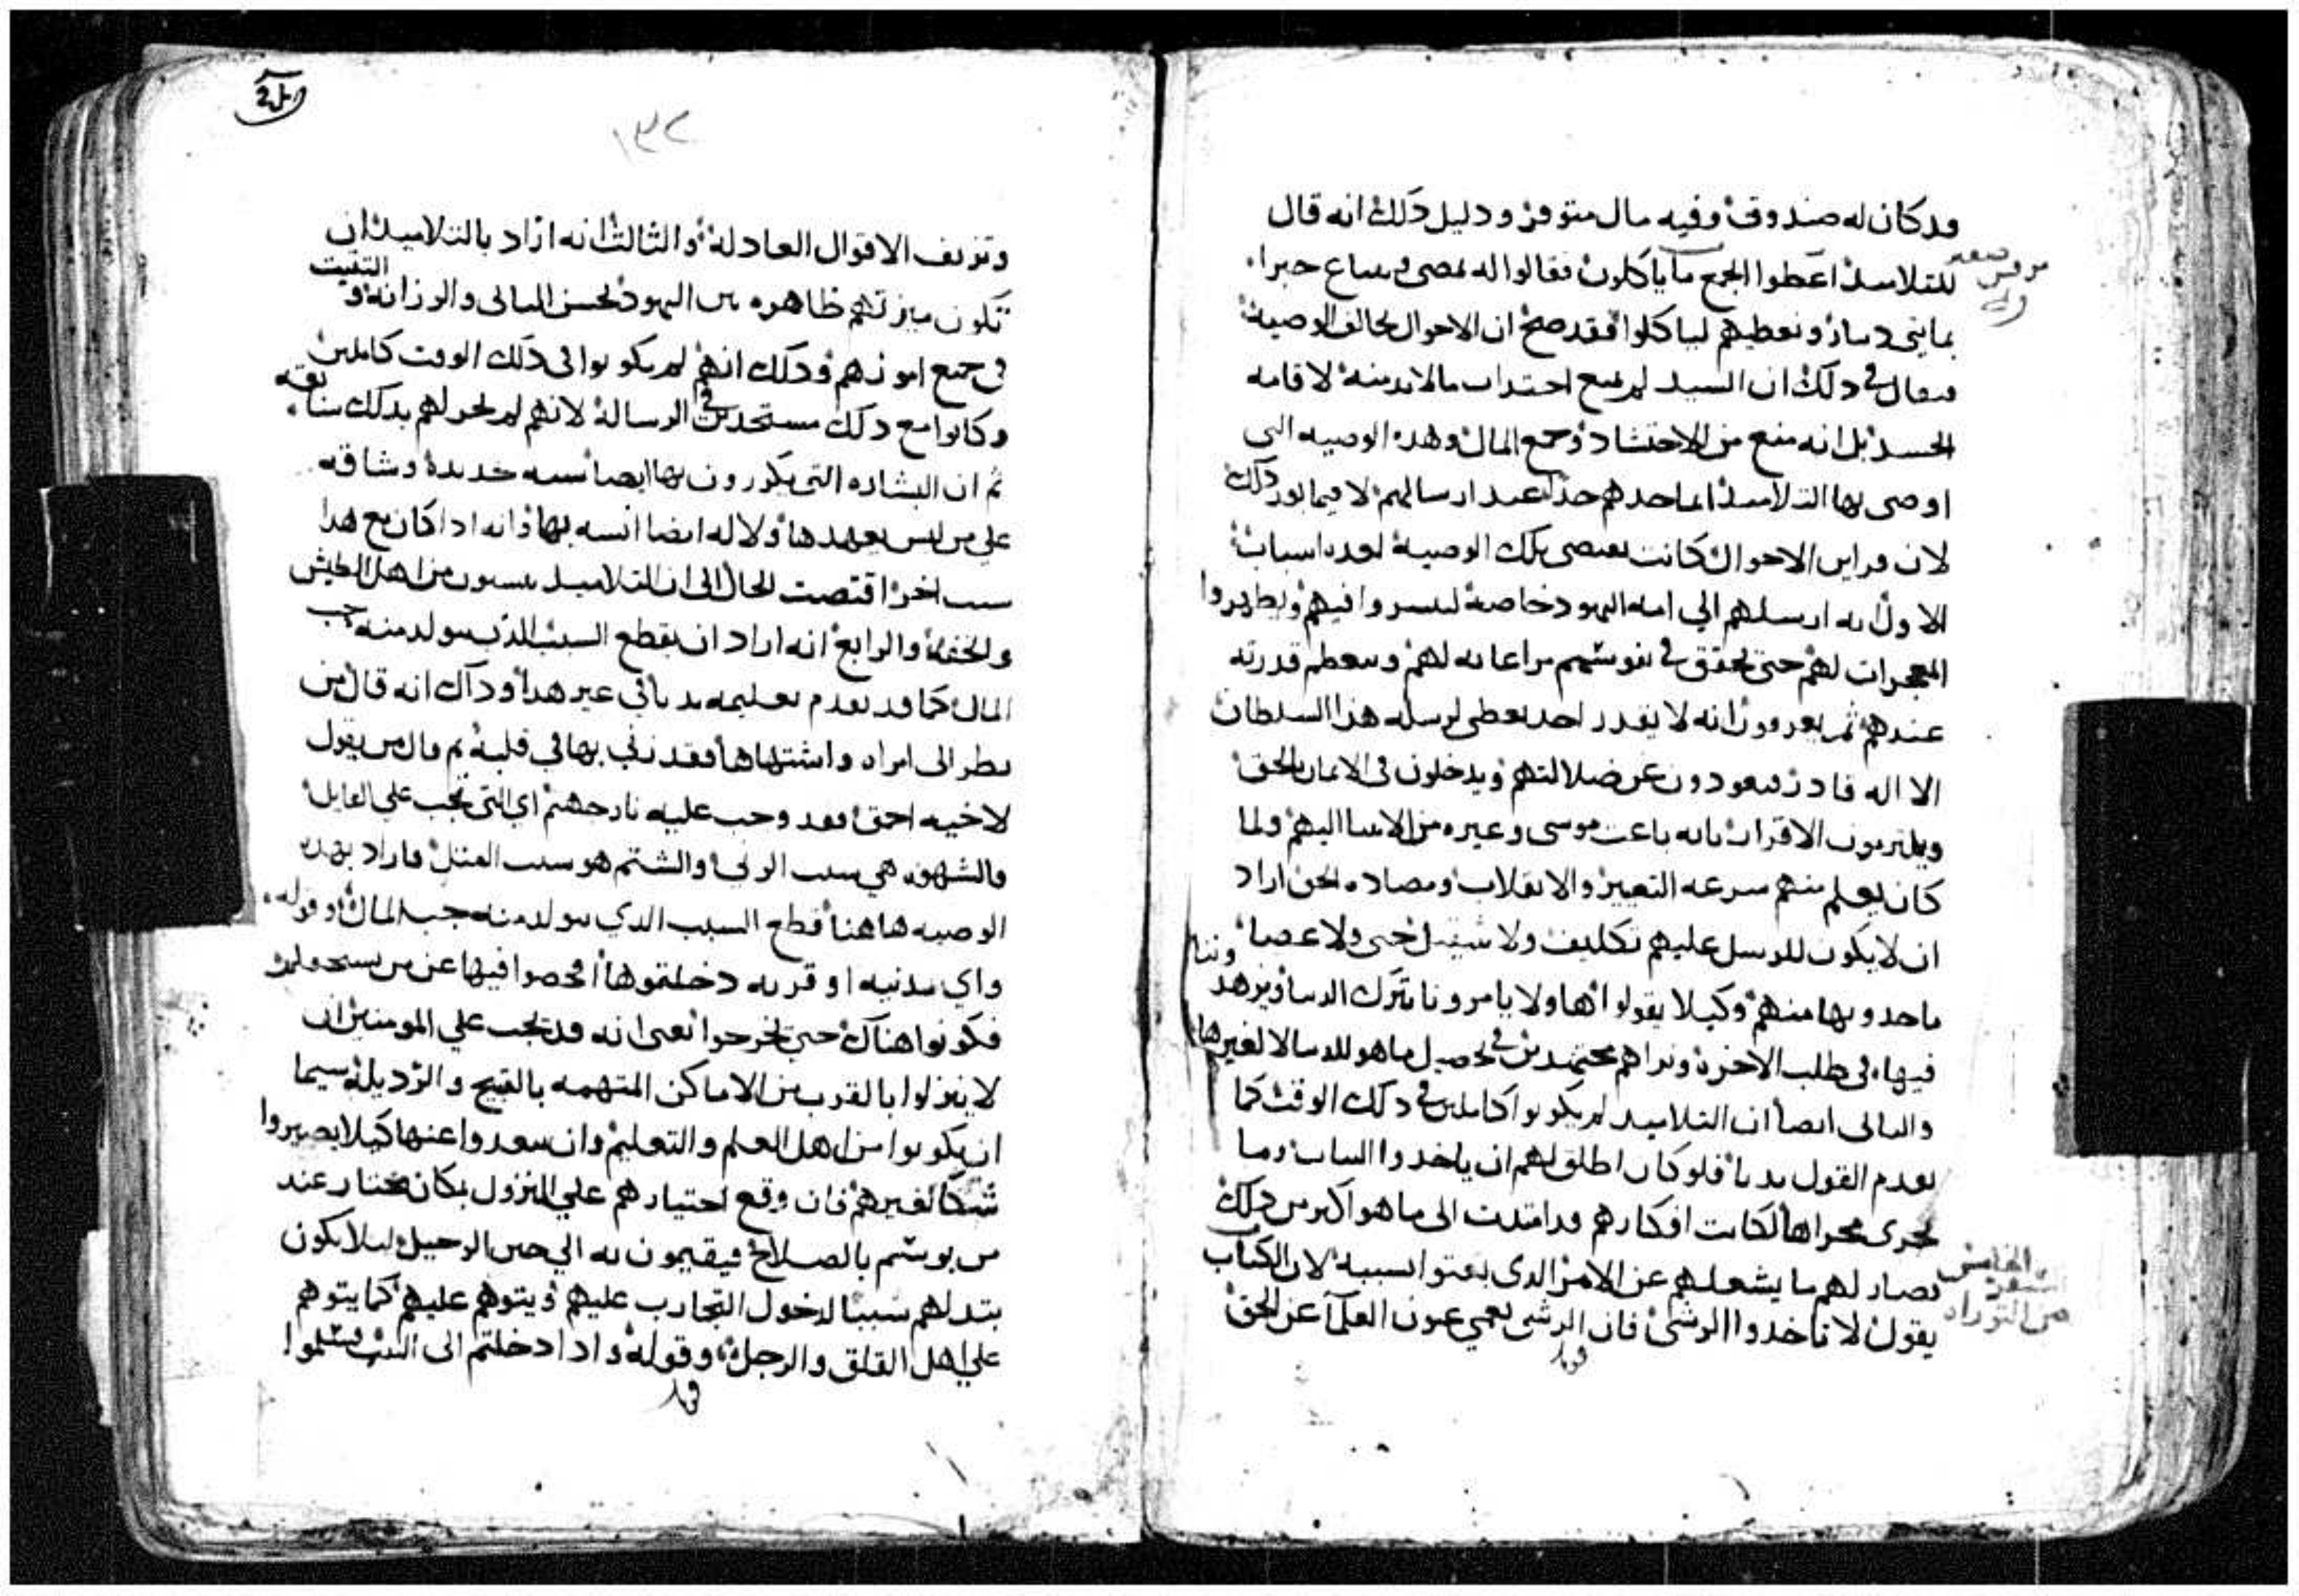 قد كان له صندوق وفيه مال متوفر ودليل ذلك انه قال
للتلاميذ اعطوا الجمع ما ياكلون فقالوا له نمضي ونبتاع خبزا
بمايتي دينار ونعطيهم لياكلوا فقد صح ان الاحوال تخالف الوصية
فيقال في ذلك ان السيد لم يمنع احتداب ما لابد منه لاقامه
الجسد بل انه منع من الاحتشاد وجمع المال وهذه الوصيه التي
اوصى بها التلاميذ انما حدهم حدا عند ارسالهم لا فيما بعد ذلك
لان قراين الاحوال كانت تقتضي تلك الوصية لعده اسباب
الاول انه ارسلهم الي امه اليهود خاصة ليسيروا فيهم ويظهروا
المعجزات لهم حتى تحقق في نفوسهم مراعاته لهم وتعظم قدرته
عندهم ثم يعرفون انه لا يقدر احد يعطي لرسله هذا السلطان
الا اله قادر فيعودون عن ضلالتهم ويدخلون في الايمان بالحق
ويلتزمون الاقرار بانه باعث موسى وغيره من الانبيا اليهم ولما
كان يعلم منهم سرعه التغيير والانقلاب ومضاده الحق اراد
ان لا يكون للرسل عليهم تكليف ولا شي حتى ولا عصا
ياخدونها منهم وكيلا يقولوا اهاولا يامرونا بترك الدنيا ونزهد
فيها في طلب الاخرة ونراهم مجتهدين في تحصيل ما هو للدنيا لا لغيرها
والثاني ايضا ان التلاميد لم يكونوا كاملين في ذلك الوقت كما
تقدم القول بديا فلو كان اطلق لهم ان ياخدوا الثياب وما
يجري مجراها لكانت افكارهم قد امتدت الى ما هو اكبر من ذلك
فصار لهم ما يشغلهم عن الامر الذي بعثوا لسببه لان الكتاب
يقول لا تاخدوا الرشى فان الرشى يعمي عيون العلما عن الحق
مرقس
الخامس
سفر
من التوراه
١٣٢
وتزيف الاقوال العادلة والثالث انه اراد بالتلاميذ ان
تكون ميزتهم ظاهره بين اليهود بحسن المباني والرزانة و التثبت
في جميع امورهم وذلك انهم لم يكونوا في ذلك الوقت كاملين
وكانوا مع ذلك مستجدين في الرسالة لانهم لم يجر لهم بذلك سابقه
ثم ان البشاره التي يكررون بها ايضا نسبه جديدة وشاقه
علي من ليس يعهدها ولا له ايضا انسه بها وانه ادا كان مع هدا
سبب اخر اقتضت الحال الى ان التلاميد ينسبون من اهل الطيش
والخفة والرابع انه اراد ان يقطع السبب الذي يتولد منه حب
المال كما قد تقدم تعليمه بديا في غير هدا وداك انه قال من
نظر الى امراه واشتهاها فقد زنى بها في قلبه ثم قال من يقول
لاخيه احمق فقد وجب عليه نار جهنم اي التي تجب علي القايل
فالشهوه هي سبب الزنى والشتم هو سبب القتل فاراد بهده
الوصيه هاهنا قطع السبب الدي يتولد منه حب المال وقوله
واي مدينه او قريه دخلتموها افحصوا فيها عن من يستحق
فكونوا هناك حتى تخرجوا نعني انه قد يجب علي المومنين ان
لا ينزلوا بالقرب من الاماكن المتهمه بالقبيح والرديلة سيما
ان يكونوا من اهل العلم والتعليم وان يبعدوا عنها كيلا يصيروا
شكا لغيرهم فان وقع اختيارهم علي النزول بمكان يختار عند
من يوسم بالصلاح فيقيمون به الي حين الرحيل ليلا يكون
بتدلهم سببا لدخول التجارب عليهم ويتوهم عليهم كما يتوهم
علي اهل القلق والرجل وقوله واداا دخلتم الى البيت فسلموا